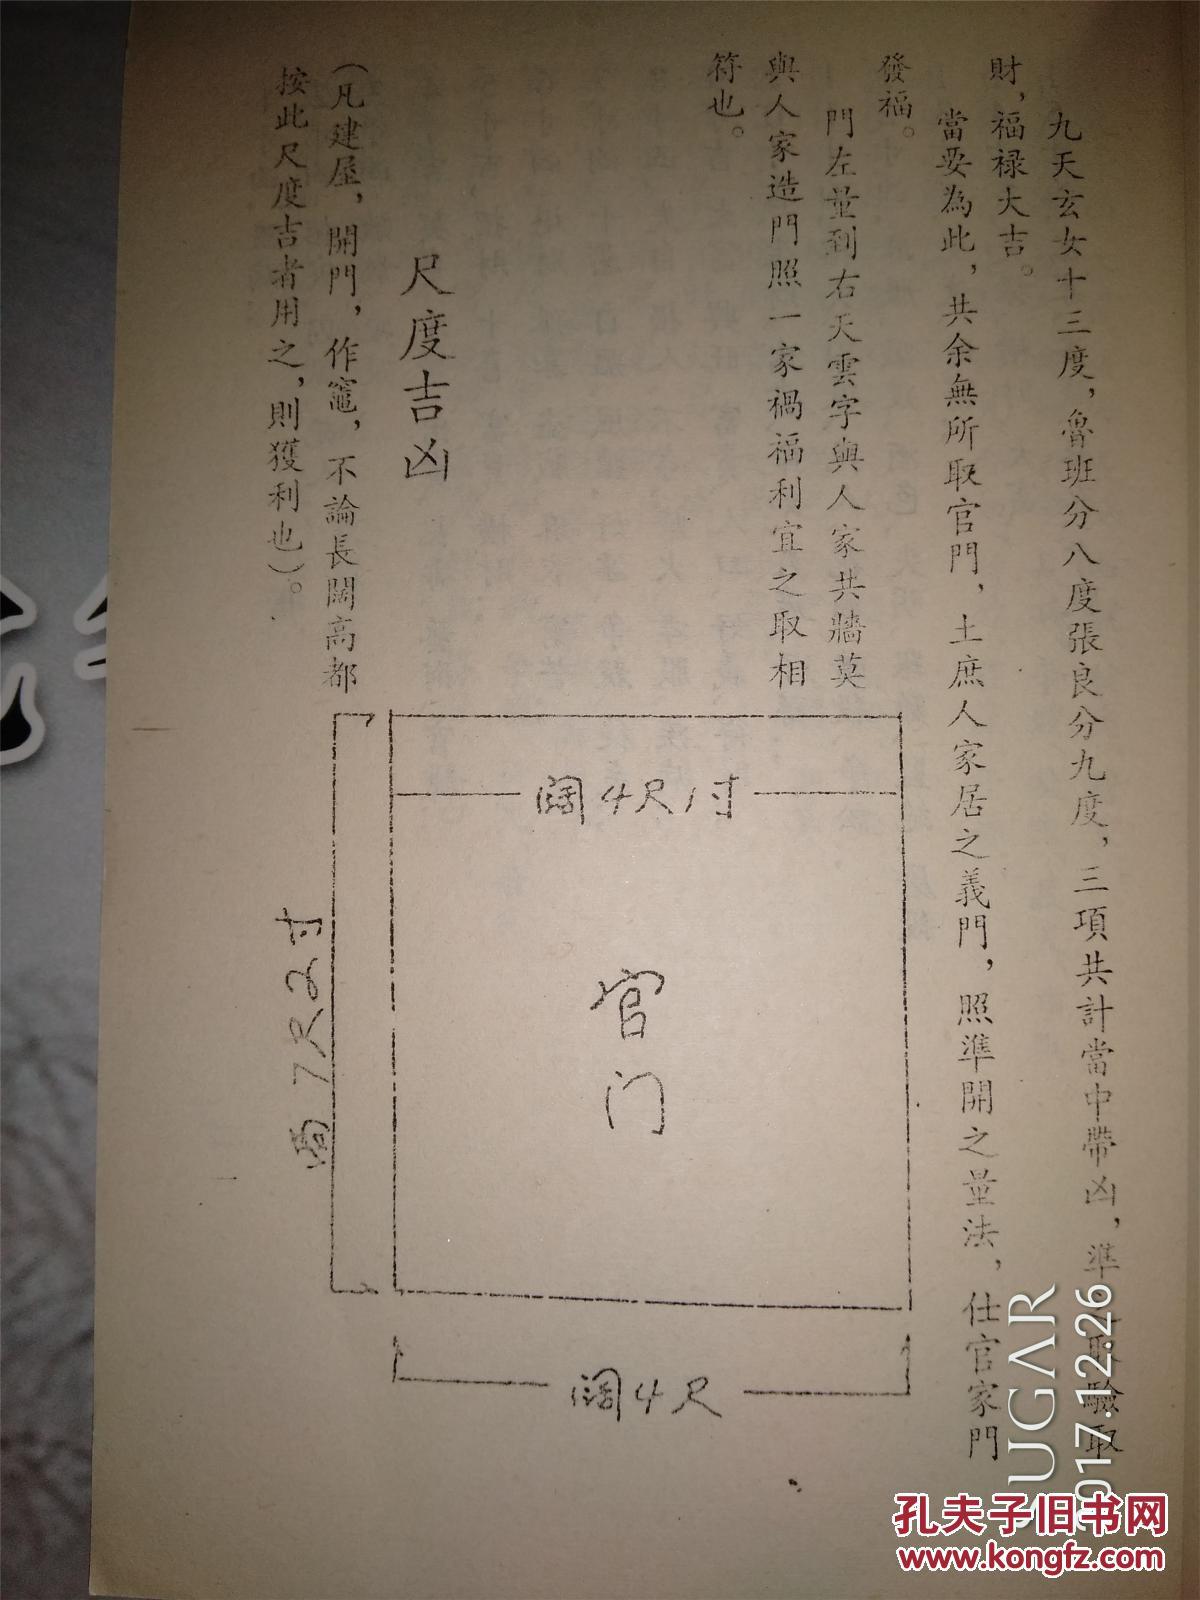 九天玄女十三度，魯班分八度張良分九度，三項共計當中帶凶，準 取驗取
財，福祿大吉。
當要為此，共余無所取官門，土庶人家居之義門，照準開之量法，仕官家門
發福。
門左量到右天雲字與人家共牆莫
與人家造門照一家禍福利宜之取相
符也。
尺度吉凶
（凡建屋，開門，作竈，不論長闊高都
按此尺度吉者用之，則獲利也）。
阔4尺1寸
官门
7尺2寸
阔4尺
UGAR
017.12.26
孔夫子旧书网
www.kongfz.com